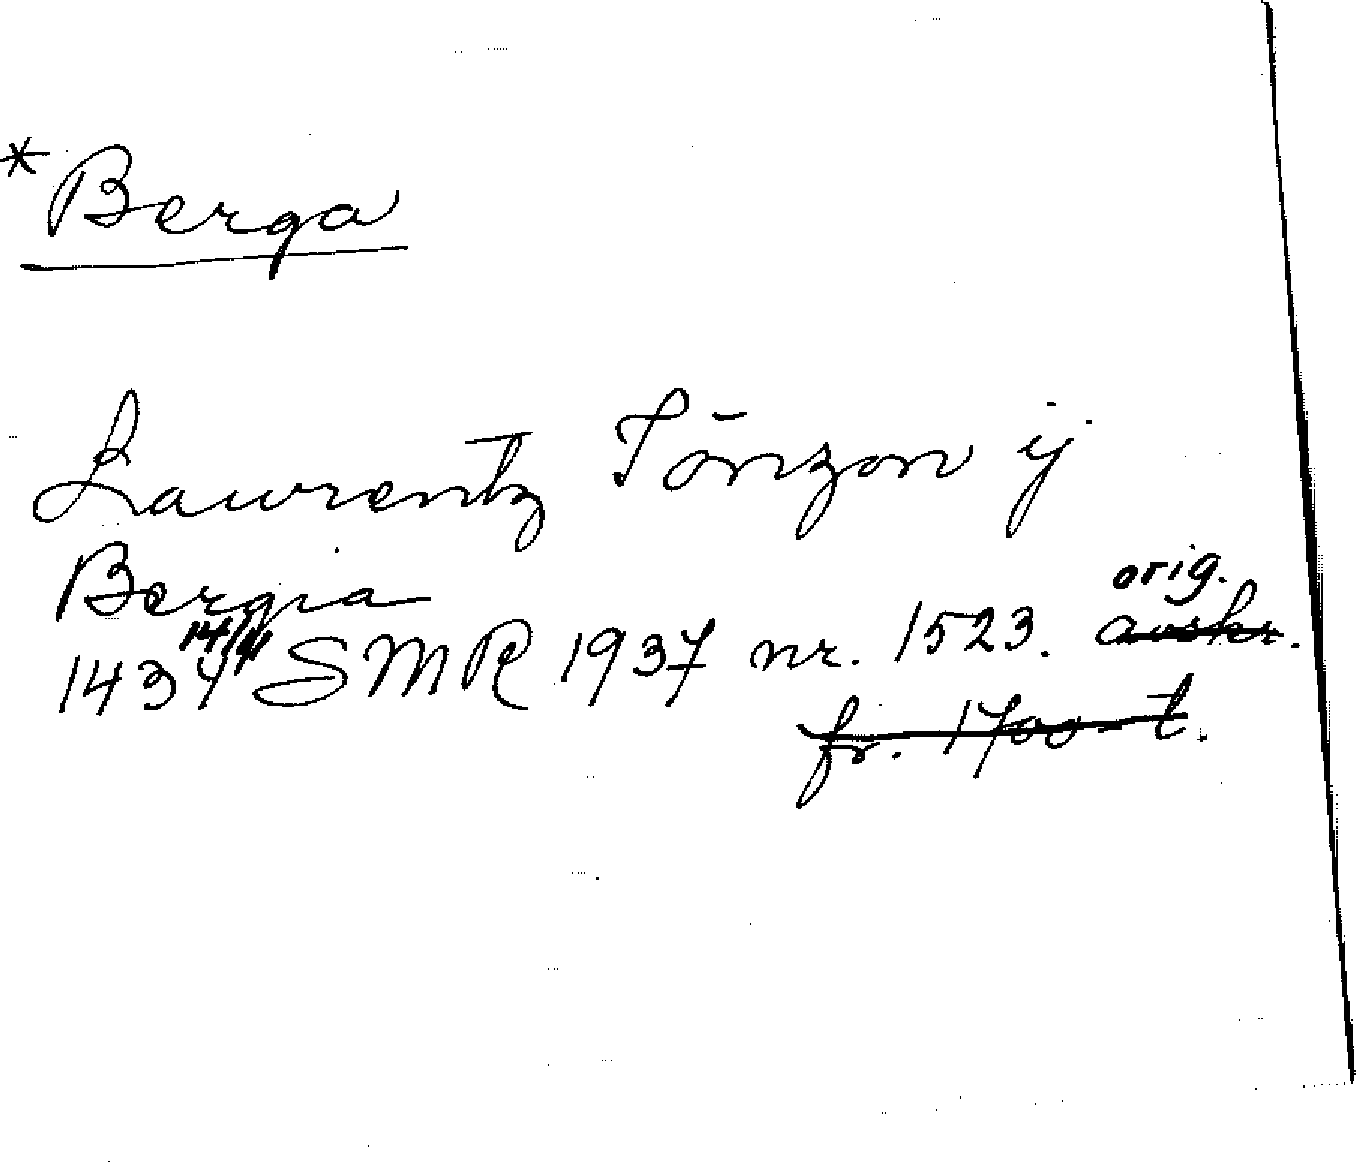 * Berga
Lawrentz Tönzon ij
Bergia
1437 14/4 SMR 1937 nr. 1523. orig. avskr.
fr. 1700-t.